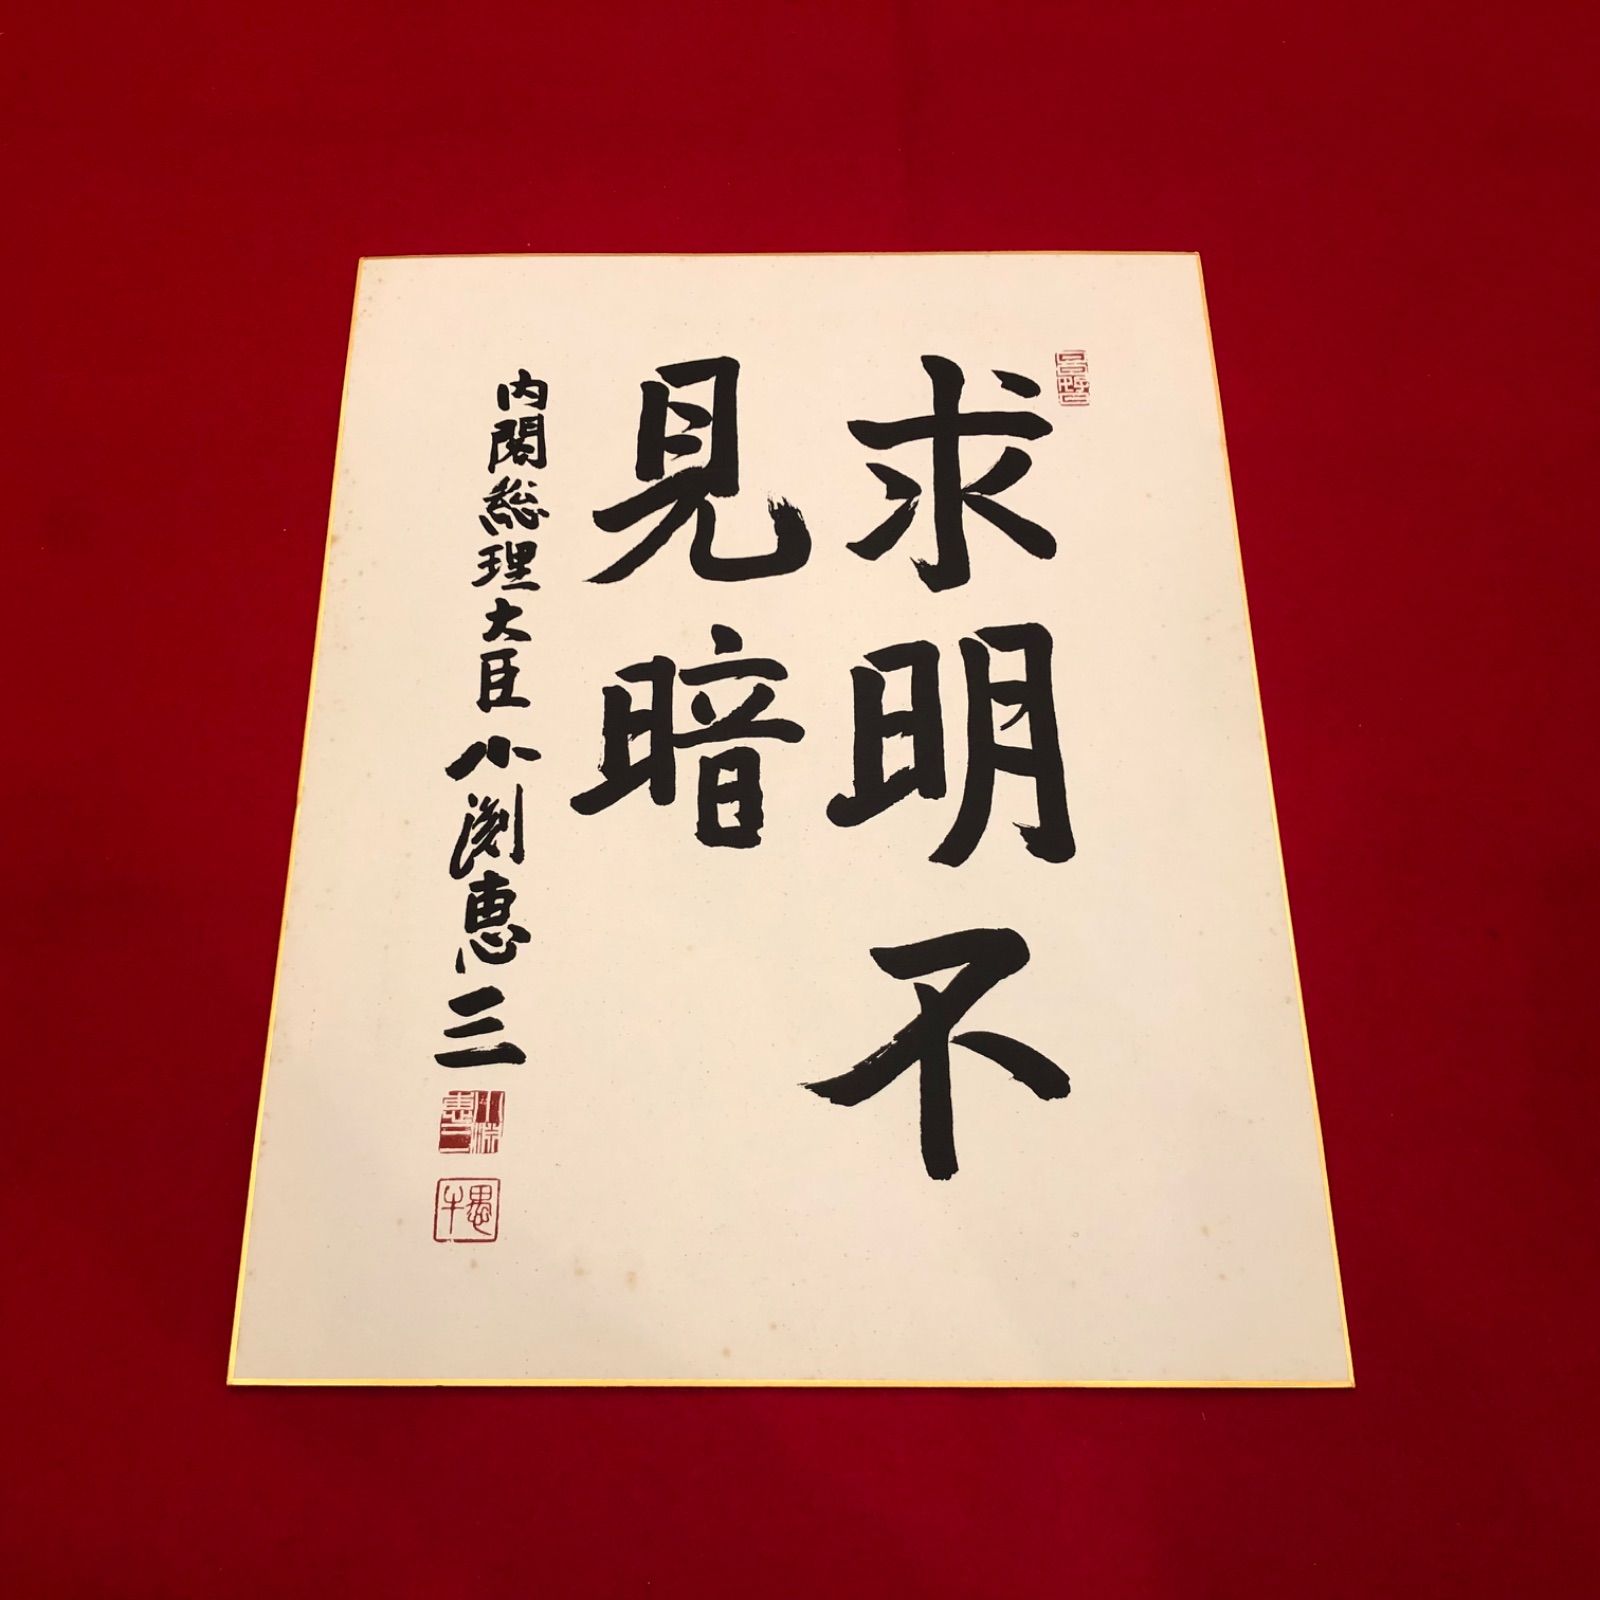 求明不
見暗
内閣総理大臣 小渕恵三
小淵
惠三
愚牛